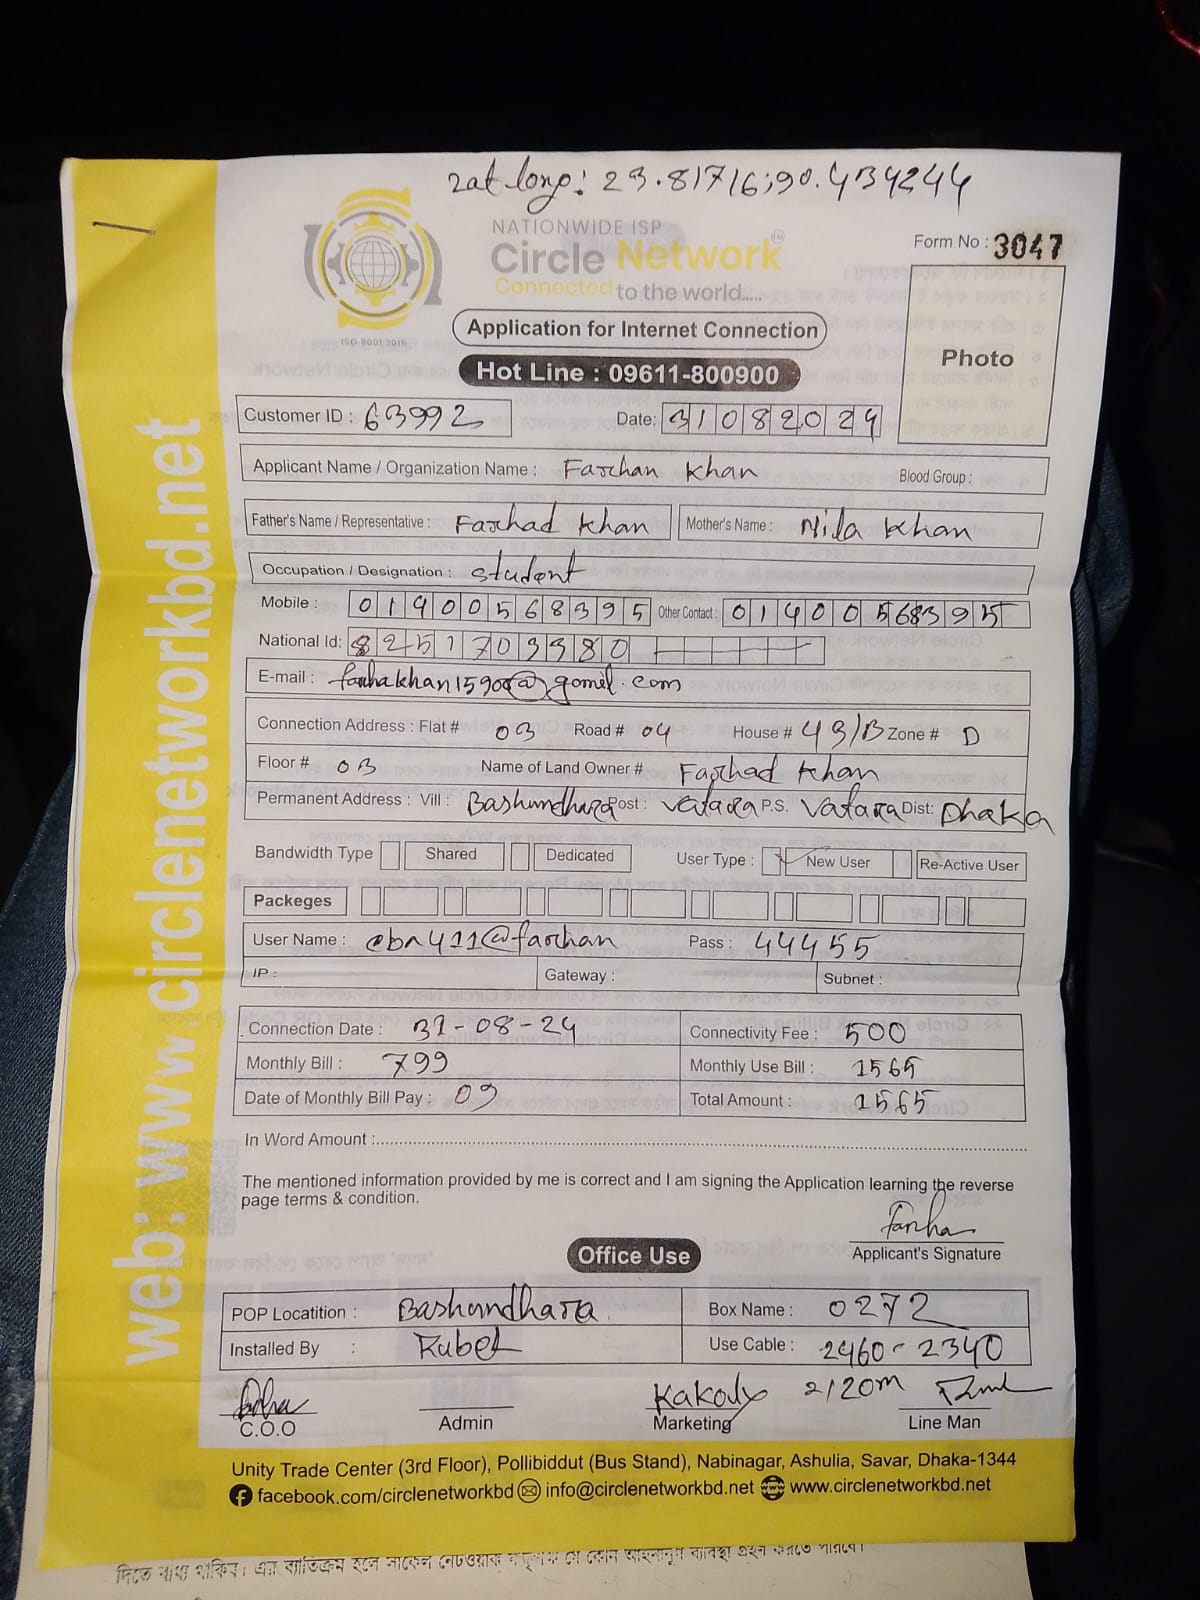 Lat long: 23.81716;90.434244
NATIONWIDE ISP
Circle Network TM
Connected to the world.....
ISO 9001:2015
Form No : 3047
Application for Internet Connection
Photo
Hot Line : 09611-800900
Customer ID : 63992 Date: 31082024
Applicant Name / Organization Name : Farhan Khan Blood Group :
Father's Name / Representative : Farhad Khan Mother's Name : Nila Khan
Occupation / Designation : Student
Mobile : 01400568395 Other Contact : 01400568395
National Id: 8251703380
E-mail :
Connection Address : Flat # 03 Road # 04 House # 43/B Zone # D
Floor # 03 Name of Land Owner # Farhad Khan
Permanent Address : Vill : Bashundhara Post : Vatara P.S. Vatara Dist: Dhaka
Bandwidth Type Shared Dedicated User Type : New User Re-Active User
Packeges
User Name : Pass : 44455
IP : Gateway : Subnet :
Connection Date : 31-08-24 Connectivity Fee : 500
Monthly Bill : 799 Monthly Use Bill : 1565
Date of Monthly Bill Pay : 09 Total Amount : 1565
In Word Amount :
The mentioned information provided by me is correct and I am signing the Application learning the reverse
page terms & condition.
Farha
Applicant's Signature
Office Use
POP Locatition : Bashundhara Box Name : 0272
Installed By : Rubel Use Cable : 2460-2340
Kakoly 2/120m
C.O.O Admin Marketing Line Man
Unity Trade Center (3rd Floor), Pollibiddut (Bus Stand), Nabinagar, Ashulia, Savar, Dhaka-1344
facebook.com/circlenetworkbd info@circlenetworkbd.net www.circlenetworkbd.net
web: www.circlenetworkbd.net